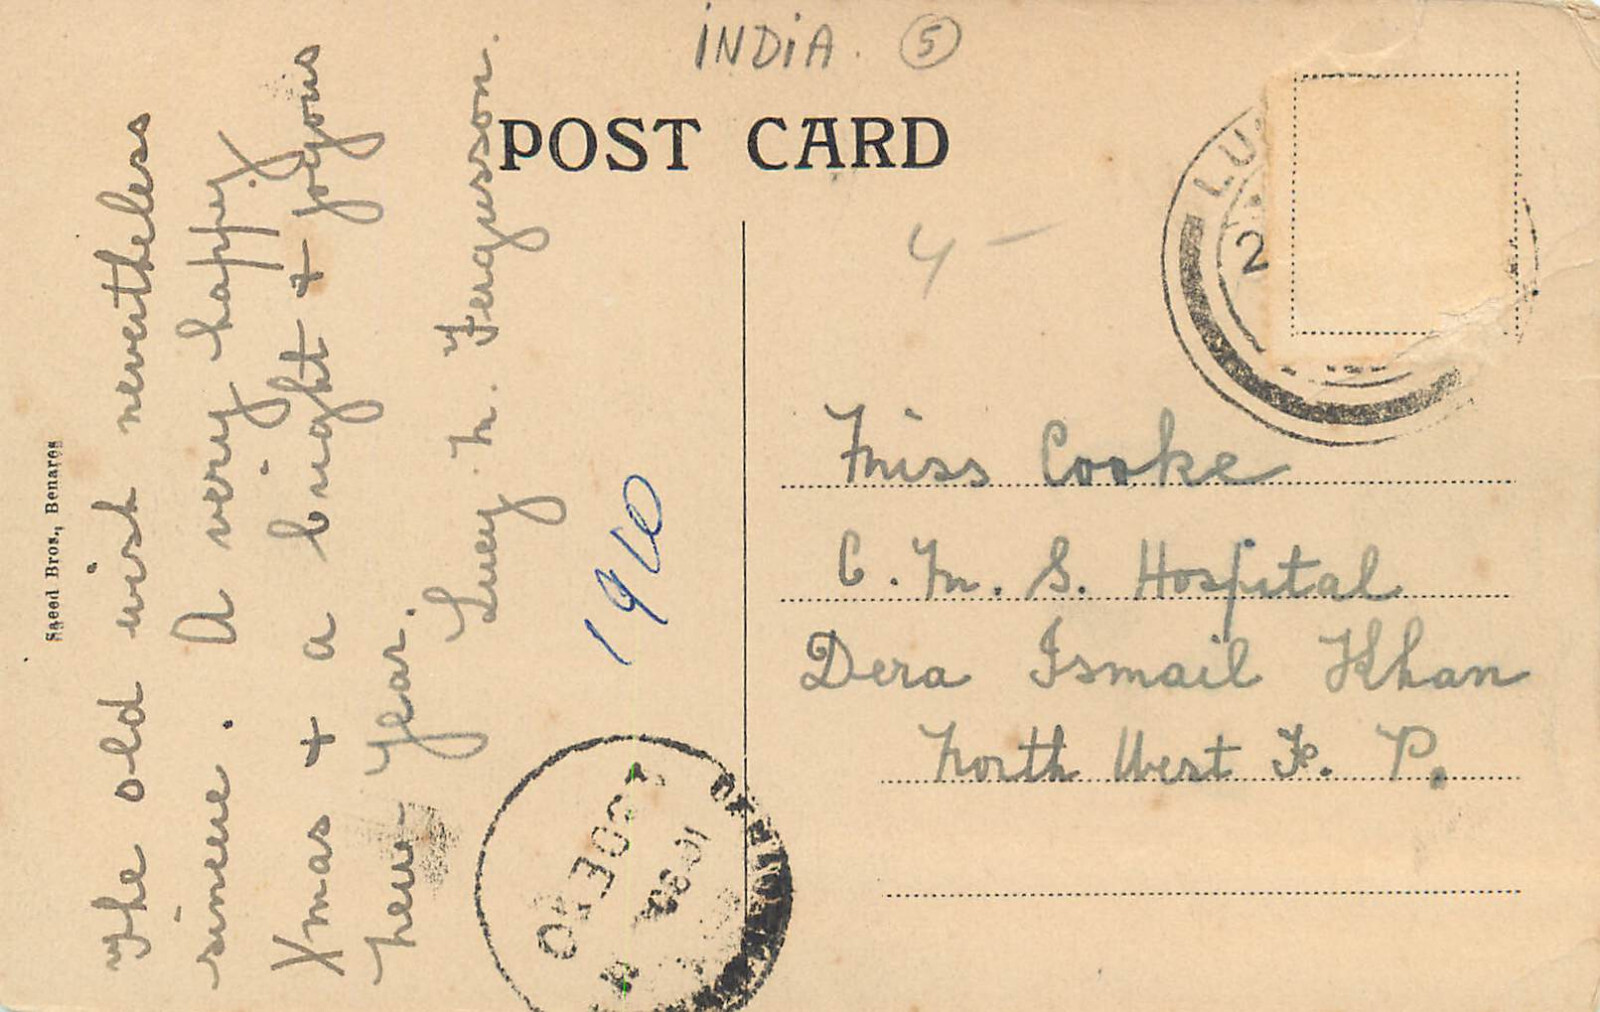 INDIA. 5
POST CARD
Saeed Bros., Benares
The old wish nevertheless
sincere. A very happy
Xmas + a bright + joyous
New Year.
Lucy. M. Fergusson.
1910
4 –
LU
2
Miss Cooke
C. M. S. Hospital
Dera Ismail Khan
North West F. P.